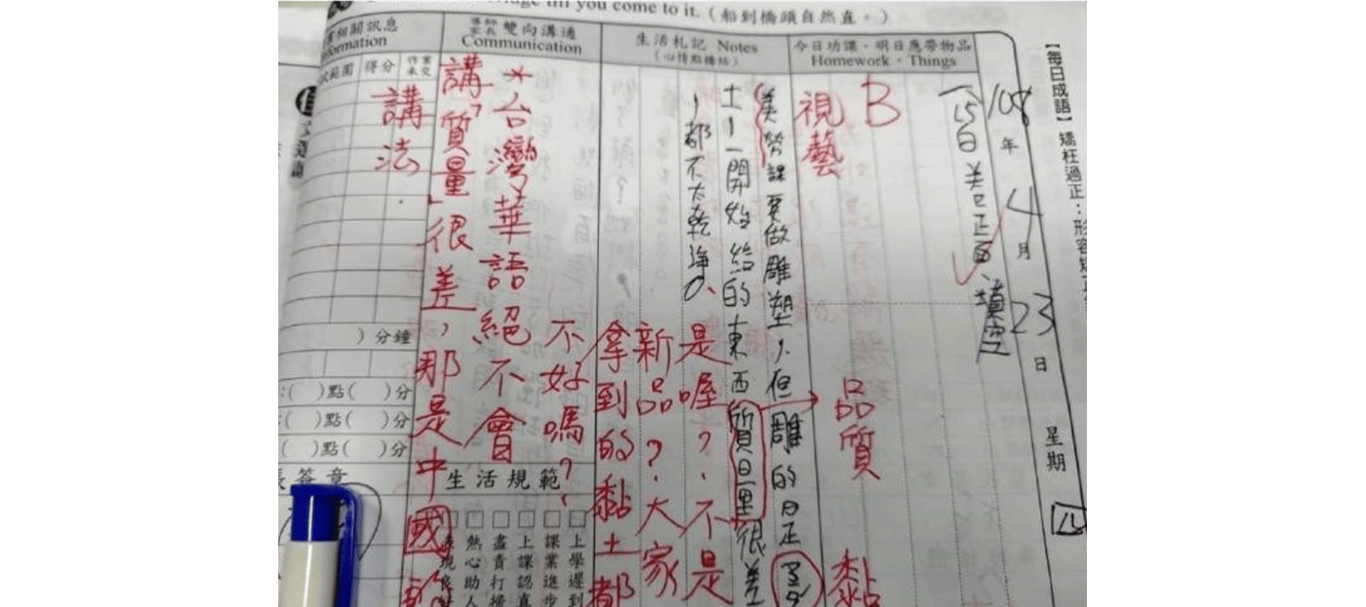 idge till you come to it.（船到橋頭自然直。）
【每日成語】矯枉過正：形容矯
108年4月23日
星期
今日功課、明日應帶物品
Homework・Things
生活札記 Notes
（心情點播站）
導師
家長 雙向溝通
Communication
相關訊息
formation
範圍
得分
作業
未交
填空
B
視藝
品質
黏
美勞課要做雕塑，但雕的
土，一開始給的東西質量很差
，都不太乾淨。
是喔？不是
新品？大家
拿到的黏土都
不好嗎？
*台灣華語絕不會
講"質量"很差，那是中國的
講法
）分鐘
:（　）點（　）分
:（　）點（　）分
（　）點（　）分
長簽章
生活規範
上學遲到
課業進步
上課認真
盡責打掃
熱心助人
表現良好